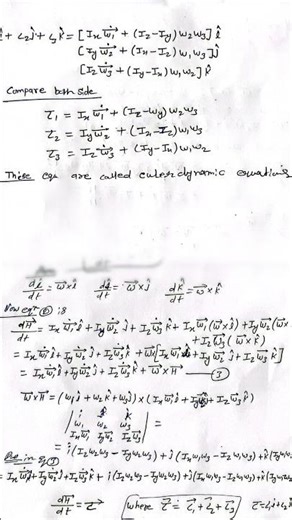 + τ2ĵ + τ3k̂ = [Ix ẇ1 + (Iz-Iy) w2w3] î
[Iy ẇ2 + (Ix-Iz) w1w3] ĵ
[Iz ẇ3 + (Iy-Ix) w1w2] k̂
Compare both side
τ1 = Ix ẇ1 + (Iz-wy) w2w3
τ2 = Iy ẇ2 + (Ix-Iz) w1w3
τ3 = Iz ẇ3 + (Iy-Ix) w1w2
These eqn are called euler dynamic equations
dî/dt = w⃗×î dĵ/dt = w⃗×ĵ dk̂/dt = w⃗×k̂
Now eqn is
dH⃗/dt = Ix ẇ1 î + Iy ẇ2 ĵ + Iz ẇ3 k̂ + Ix w⃗1 (w⃗×î) + Iy w⃗2 (w⃗×
+ Iz w⃗3 (w⃗×k̂)
= Ix ẇ1 î + Iy ẇ2 ĵ + Iz ẇ3 k̂ + w⃗×[Ix w1 î + Iy w2 ĵ + Iz w3 k̂]
= Ix ẇ1 î + Iy ẇ2 ĵ + Iz ẇ3 k̂ + w⃗×H⃗
w⃗×H⃗ = (w1î + w2k̂ + w3) × (Ix w1 î + Iy w2 ĵ + Iz w3 k̂)
i j k
w1 w2 w3
Ix w1 Iy w2 Iz w3 =
= i(Iz w2w3 - Iy w2w3) + j(Ix w1w3 - Iz w1w3) + k(Iy
in eq
= Ix ẇ1 î + Iy ẇ2 ĵ + Iz ẇ3 k̂ + i(Iz w2w3 - Iy w2w3) + j(Ix w1w3 - Iz w1w3) + k(Iy
dH⃗/dt = τ⃗ where τ⃗ = τ⃗1 + τ⃗2 + τ⃗3